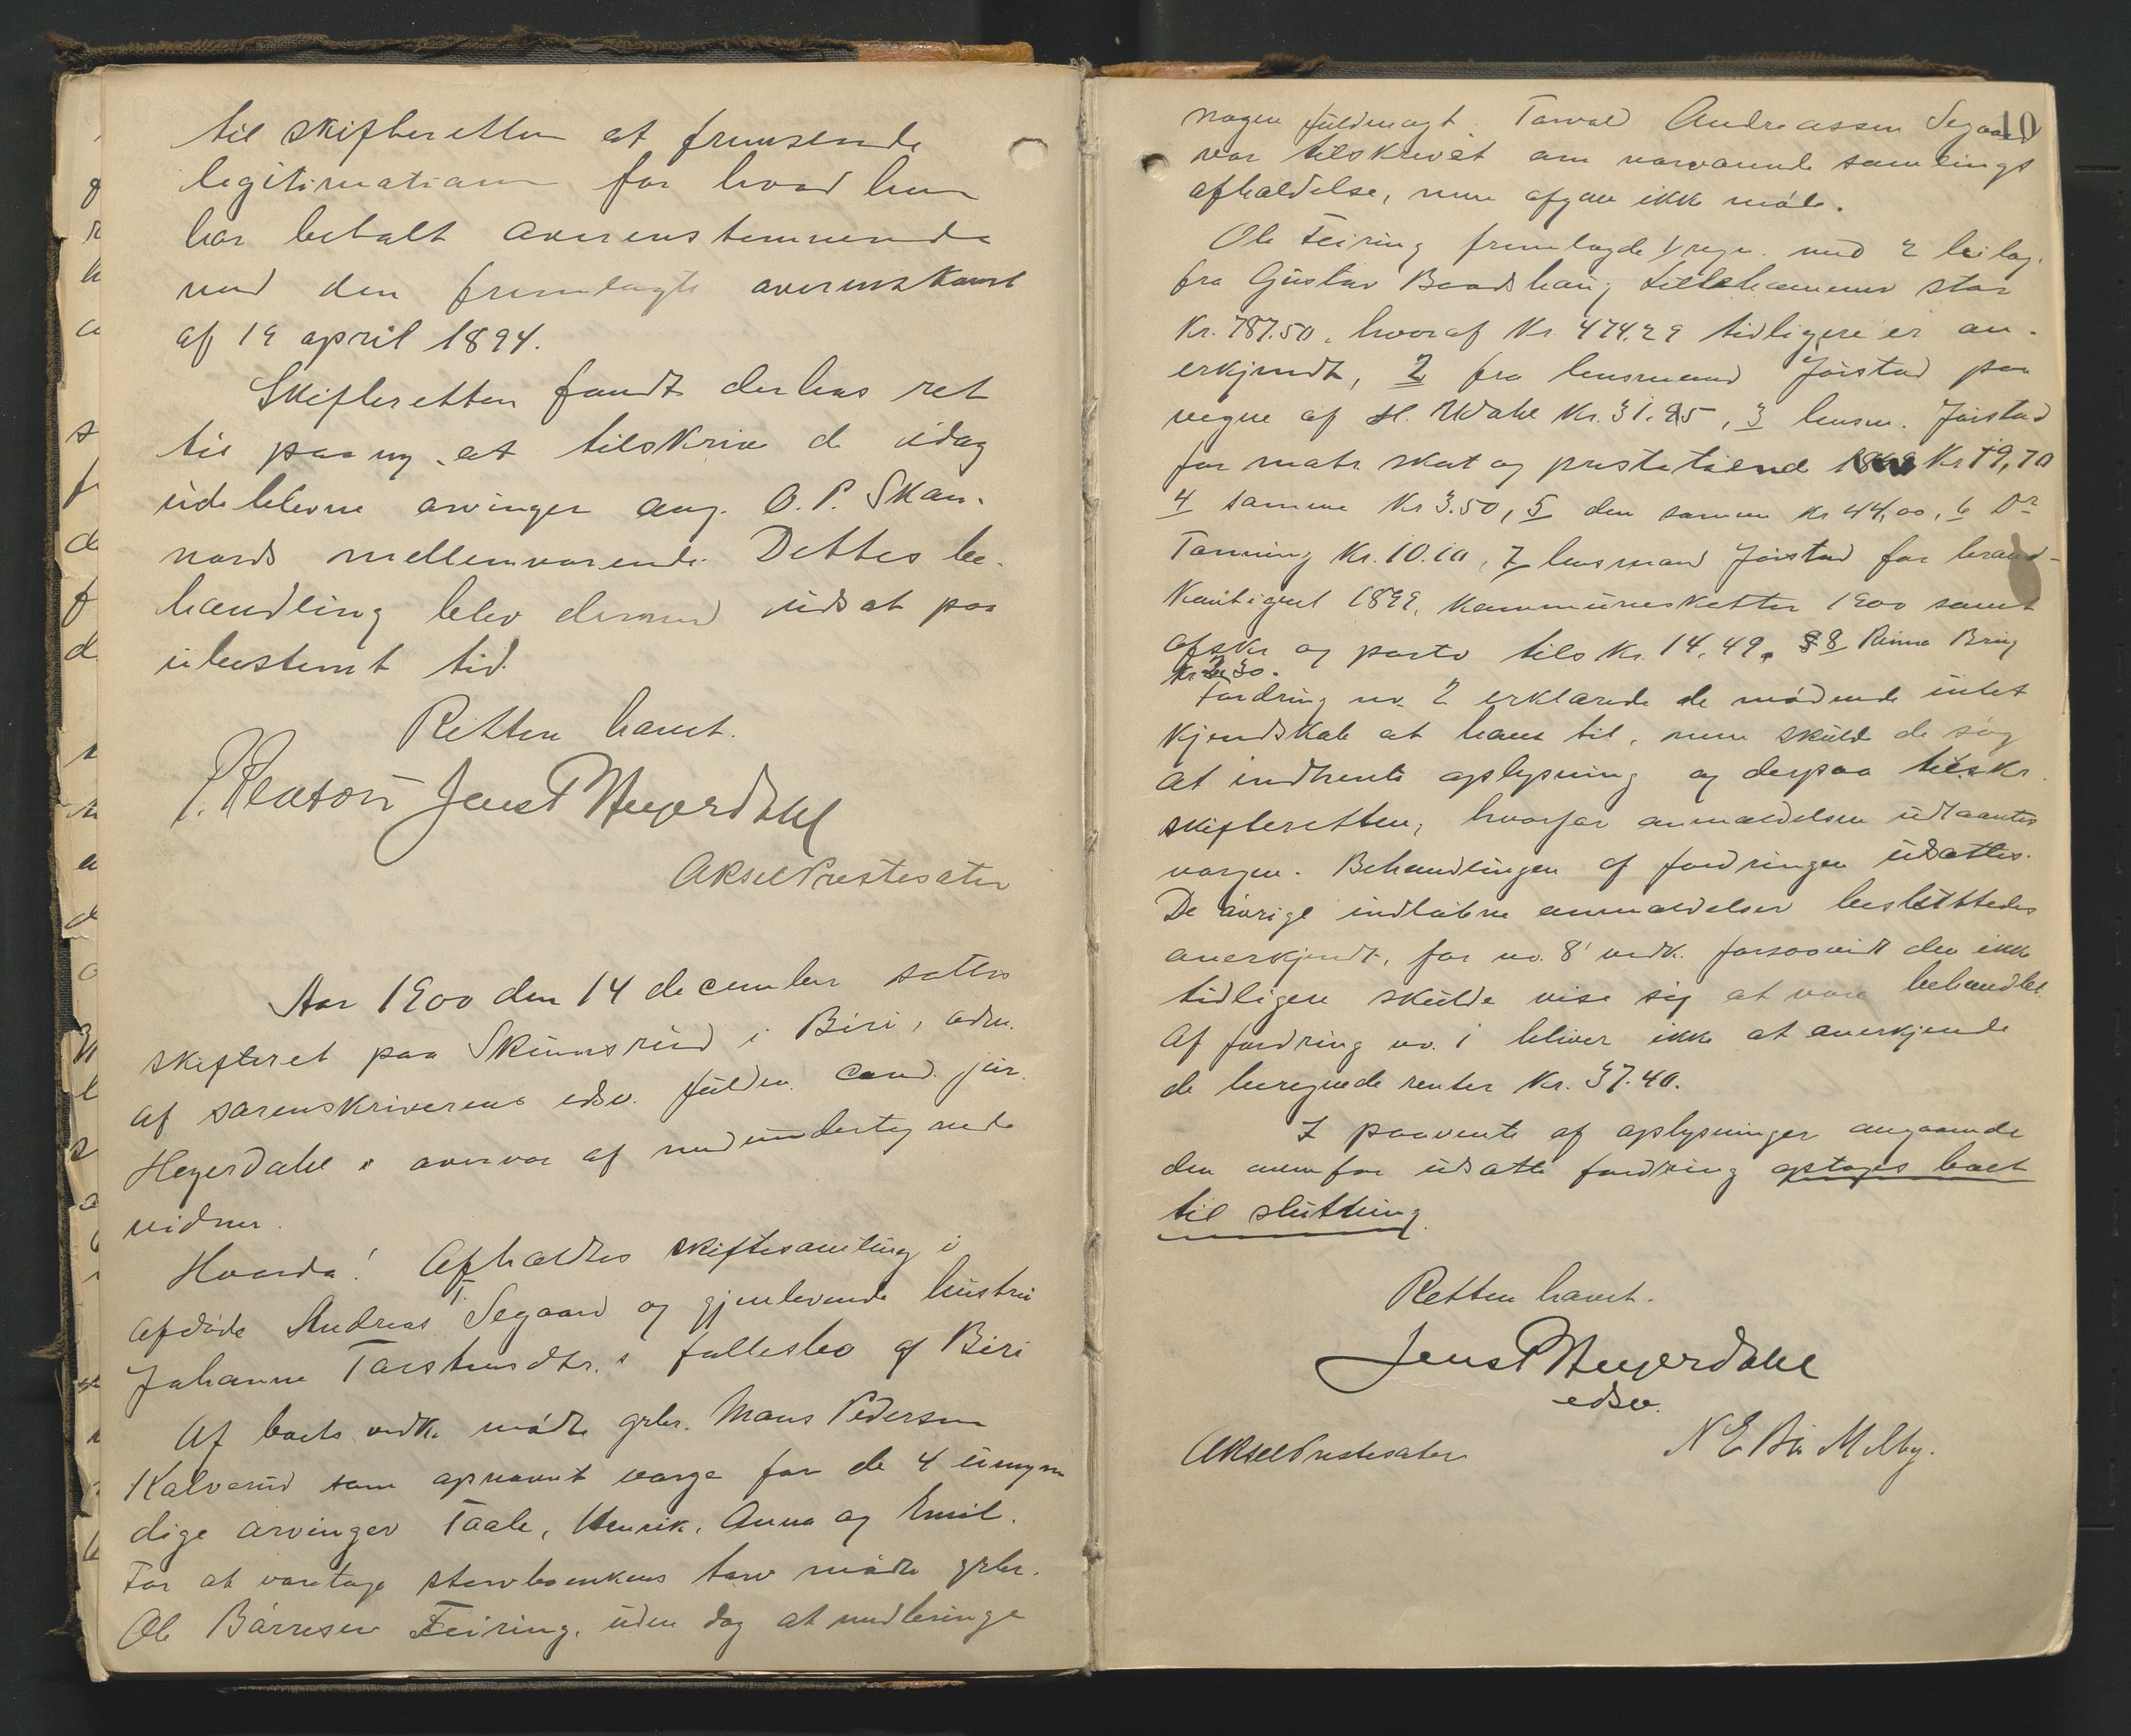 til skifteretten at fremsende
legitimation for hvad hun
har betalt overensstemmende
med den fremlagte overenskomst
af 19 april 1894.
Skifteretten fandt derhos ret
til paa ny at tilskrive de idag
udeblevne arvinger ang. O. P. Skan-
nords mellemværende. Dettes be-
handling blev dermed udsat paa
ubestemt tid.
Retten hævet.
Jens P Heyerdahl
Aksel Prestesæter
Aar 1900 den 14 december sattes
skifteret paa Skumsrud i Biri, adm.
af sorenskriverens edsv. fuldm. cand. jur.
Heyerdahl i overvær af medundertegnede
vidner.
Hvorda! Afholdtes skiftesamling i
afdøde Andreas T. Segaard og gjenlevende hustru
Johanne Torstensdtr.s fællesbo af Biri
Af boets vedk. mødte grbr. Mons Pedersen
Kalverud som opnævnt værge for de 4 umyn
dige arvinger Taale, Henrik, Anna og Emil.
For at varetage stervboenkens tarv mødte grbr.
Ole Børresen Feiring, uden dog at medbringe
10
nogen fuldmagt. Torval Andreassen Segaard
var tilskrevet om nærværende samlings
afholdelse, men afgav ikke møde.
Ole Feiring fremlagde 1/ regn. med 2 bilag.
fra Gustav Baadshaug Lillehammer stor
Kr. 787.50, hvoraf Kr. 474.29 tidligere er an-
erkjendt, 2 fra lensmand Jøistad paa
vegne af H. Wahl Kr. 31.95, 3 lensm. Jøistad
for matr skat og prestetiende Kr 19,70
4 samme Kr 3.50, 5 den samme kr 44,00, 6 Dr
Tønning Kr. 10.10, 7 lensmand Jøistad for brand-
kontigent 1899, kommuneskatter 1900 samt
afskr og porto tils Kr. 14,49, 8 Rinna Brug
kr 30.
Fordring no. 2 erklærede de mødende intet
kjendskab at have til, men skulde de søg
at indhente oplysning og derpaa tilskr.
skifteretten, hvorfor anmeldelsen udlaantes
værgen. Behandlingen af fordringen udsattes.
De øvrige indløbne anmeldelser besluttedes
anerkjendt, for no. 8' vedk. forsaavidt den ikke
tidligere skulde vise sig at være behandlet.
Af fordring no. 1 bliver ikke at anerkjende
de beregnede renter Kr. 37.40.
I paavente af oplysninger angaaende
den ovenfor udsatte fordring optages boet
til slutning.
Retten hævet.
Jens P Heyerdahl
edsv.
Aksel Prestesæter